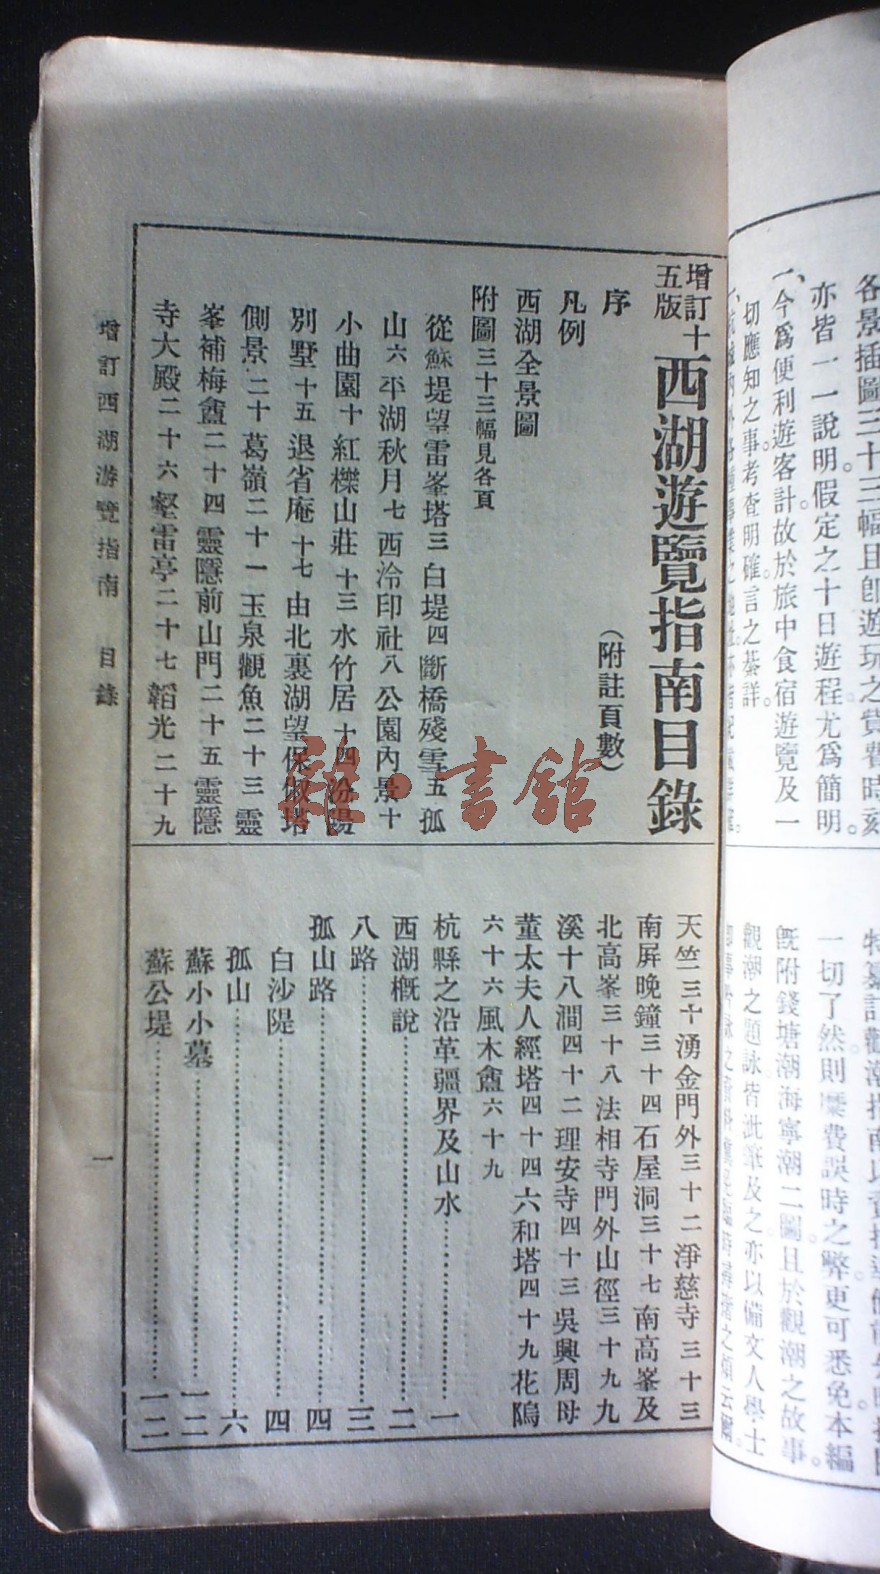 各景插圖三十三幅且即遊玩之費費時刻
亦皆一一說明假定之十日遊程尤爲簡明。
一、今爲便利遊客計故於旅中食宿遊覽及一
切應知之事。考查明確。言之綦詳。
一切了然則糜費誤時之弊。更可悉免。本編
既附錢塘潮海寧潮二圖。且於觀潮之故事。
觀潮之題詠皆泚筆及之。亦以備文人學士
增訂十五版
西湖遊覽指南目錄
序
(附註頁數)
凡例
西湖全景圖
附圖三十三幅見各頁
從蘇堤望雷峯塔三 白堤四 斷橋殘雪五 孤
山六 平湖秋月七 西泠印社八 公園內景十
小曲園十 紅櫟山莊十三 水竹居十四 汾陽
別墅十五 退省庵十七 由北裏湖望保俶塔
側景二十 葛嶺二十一 玉泉觀魚二十三 靈
峯補梅盦二十四 靈隱前山門二十五 靈隱
寺大殿二十六 壑雷亭二十七 韜光二十九
天竺三十 湧金門外三十二 淨慈寺三十三
南屏晚鐘三十四 石屋洞三十七 南高峯及
北高峯三十八 法相寺門外山徑三十九 九
溪十八澗四十二 理安寺四十三 吳興周母
董太夫人經塔四十四 六和塔四十九 花隖
六十六 風木盦六十九
杭縣之沿革疆界及山水……一
西湖概說……二
八路……三
孤山路……四
白沙隄……四
孤山……六
蘇小小墓……一二
蘇公堤……一二
增訂西湖游覽指南 目錄
一
雜·書館